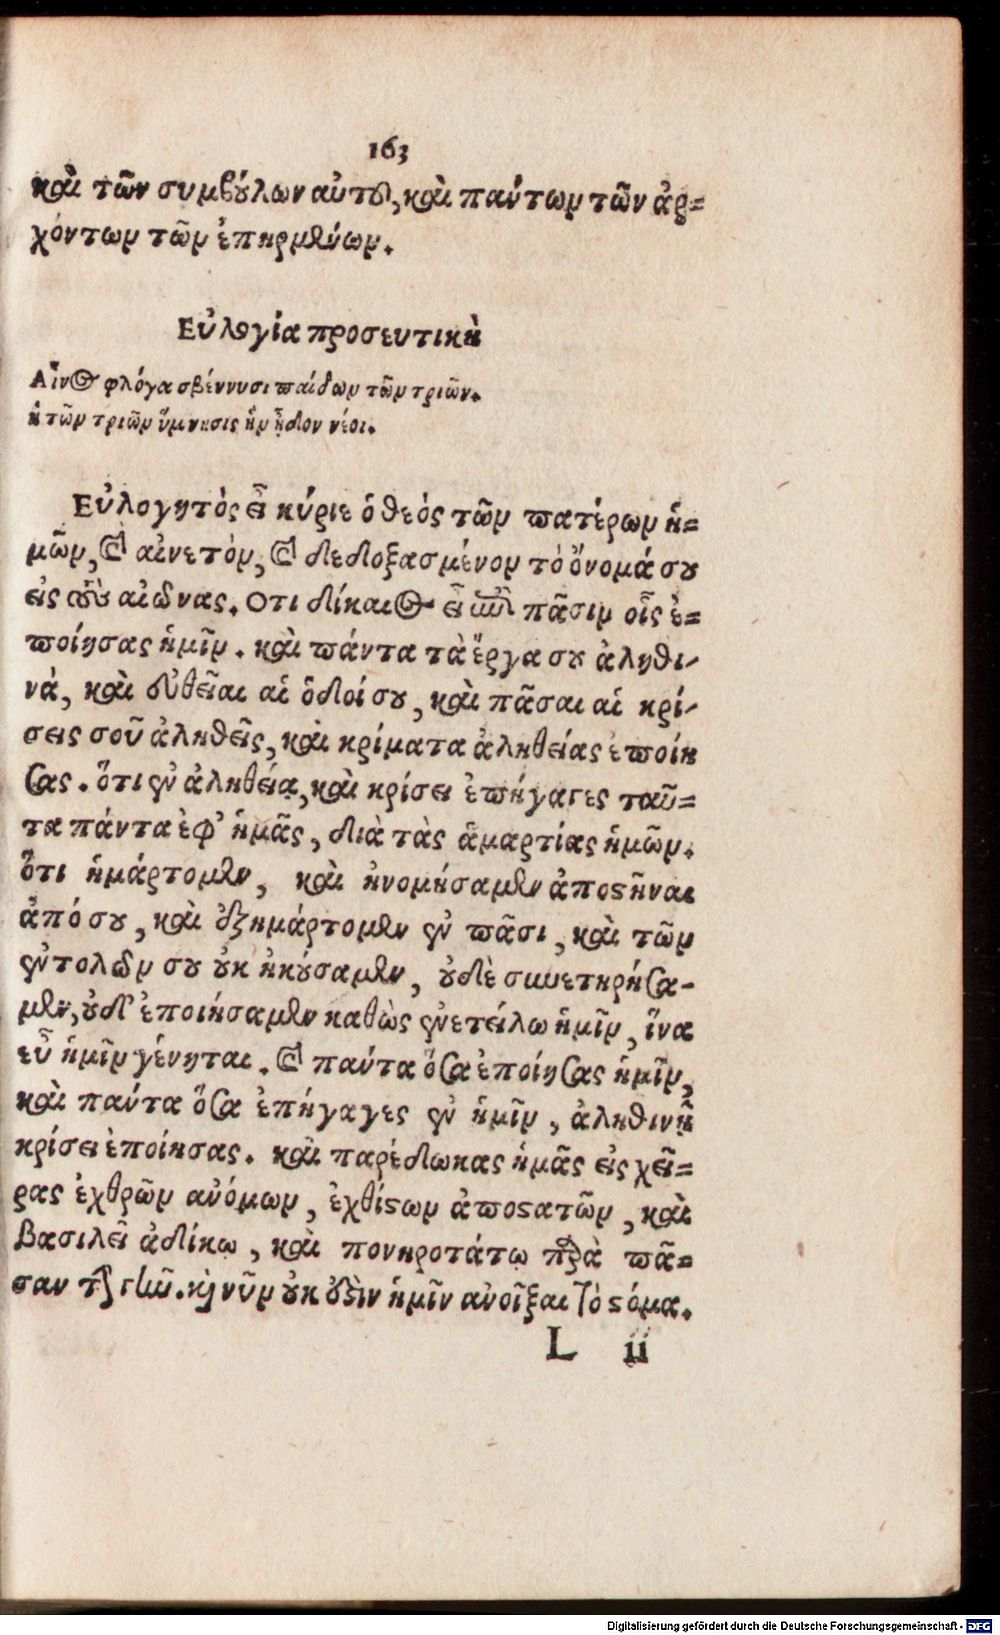 163
καὶ τῶν συμβούλων αὐτοῦ, καὶ πάντων τῶν ἀρ=
χόντων τῶν ἐπηρμένων.
Εὐλογία προσευτικὴ
Αἶνος φλόγα σβέννυσι παίδων τῶν τριῶν.
ἡ τῶν τριῶν ὕμνησις ἣν ᾖδον νέοι.
Εὐλογητὸς εἶ κύριε ὁ θεὸς τῶν πατέρων ἡ=
μῶν, καὶ αἰνετὸν, καὶ δεδοξασμένον τὸ ὄνομά σου
εἰς τοὺς αἰῶνας. Οτι δίκαιος εἶ ἐπὶ πᾶσιν οἷς ἐ=
ποίησας ἡμῖν. καὶ πάντα τὰ ἔργα σου ἀληθι-
νά, καὶ εὐθεῖαι αἱ ὁδοί σου, καὶ πᾶσαι αἱ κρί-
σεις σοῦ ἀληθεῖς, καὶ κρίματα ἀληθείας ἐποίη
σας. ὅτι ἐν ἀληθείᾳ, καὶ κρίσει ἐπήγαγες ταῦ=
τα πάντα ἐφ' ἡμᾶς, διὰ τὰς ἁμαρτίας ἡμῶν.
ὅτι ἡμάρτομεν, καὶ ἠνομήσαμεν ἀποστῆναι
ἀπό σου, καὶ ἐξημάρτομεν ἐν πᾶσι, καὶ τῶν
ἐντολῶν σου οὐκ ἠκούσαμεν, οὐδὲ συνετηρήσα-
μεν, οὐδ' ἐποιήσαμεν καθὼς ἐνετείλω ἡμῖν, ἵνα
εὖ ἡμῖν γένηται. καὶ πάντα ὅσα ἐποίησας ἡμῖν,
καὶ πάντα ὅσα ἐπήγαγες ἐν ἡμῖν, ἀληθινῇ
κρίσει ἐποίησας. καὶ παρέδωκας ἡμᾶς εἰς χεῖ=
ρας ἐχθρῶν ἀνόμων, ἐχθίστων ἀποστατῶν, καὶ
βασιλεῖ ἀδίκῳ, καὶ πονηροτάτῳ παρὰ πᾶ=
σαν τὴν γῆν. καὶ νῦν οὐκ ἔστιν ἡμῖν ἀνοῖξαι τὸ στόμα.
L ii
Digitalisierung gefördert durch die Deutsche Forschungsgemeinschaft - DFG